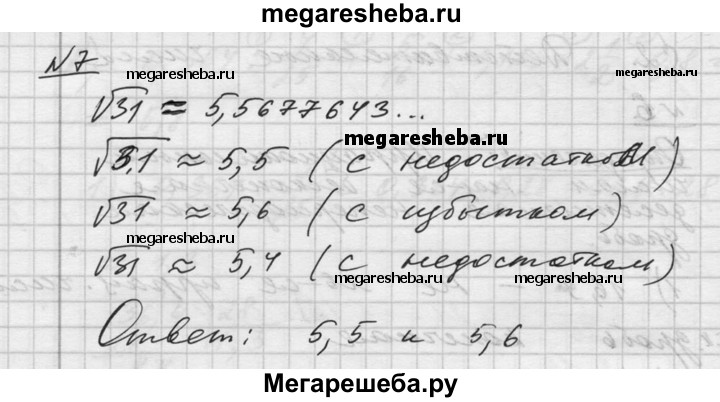 megaresheba.ru
N 7
megaresheba.ru megaresheba.ru
√31 ≈ 5,5677643...
megaresheba.ru
√3,1 ≈ 5,5 (с недостатком)
√31 ≈ 5,6 (с избытком)
megaresheba.ru megaresheba.ru
√31 ≈ 5,4 (с недостатком)
megaresheba.ru megaresheba.ru
Ответ: 5,5 и 5,6
Мегарешеба.ру